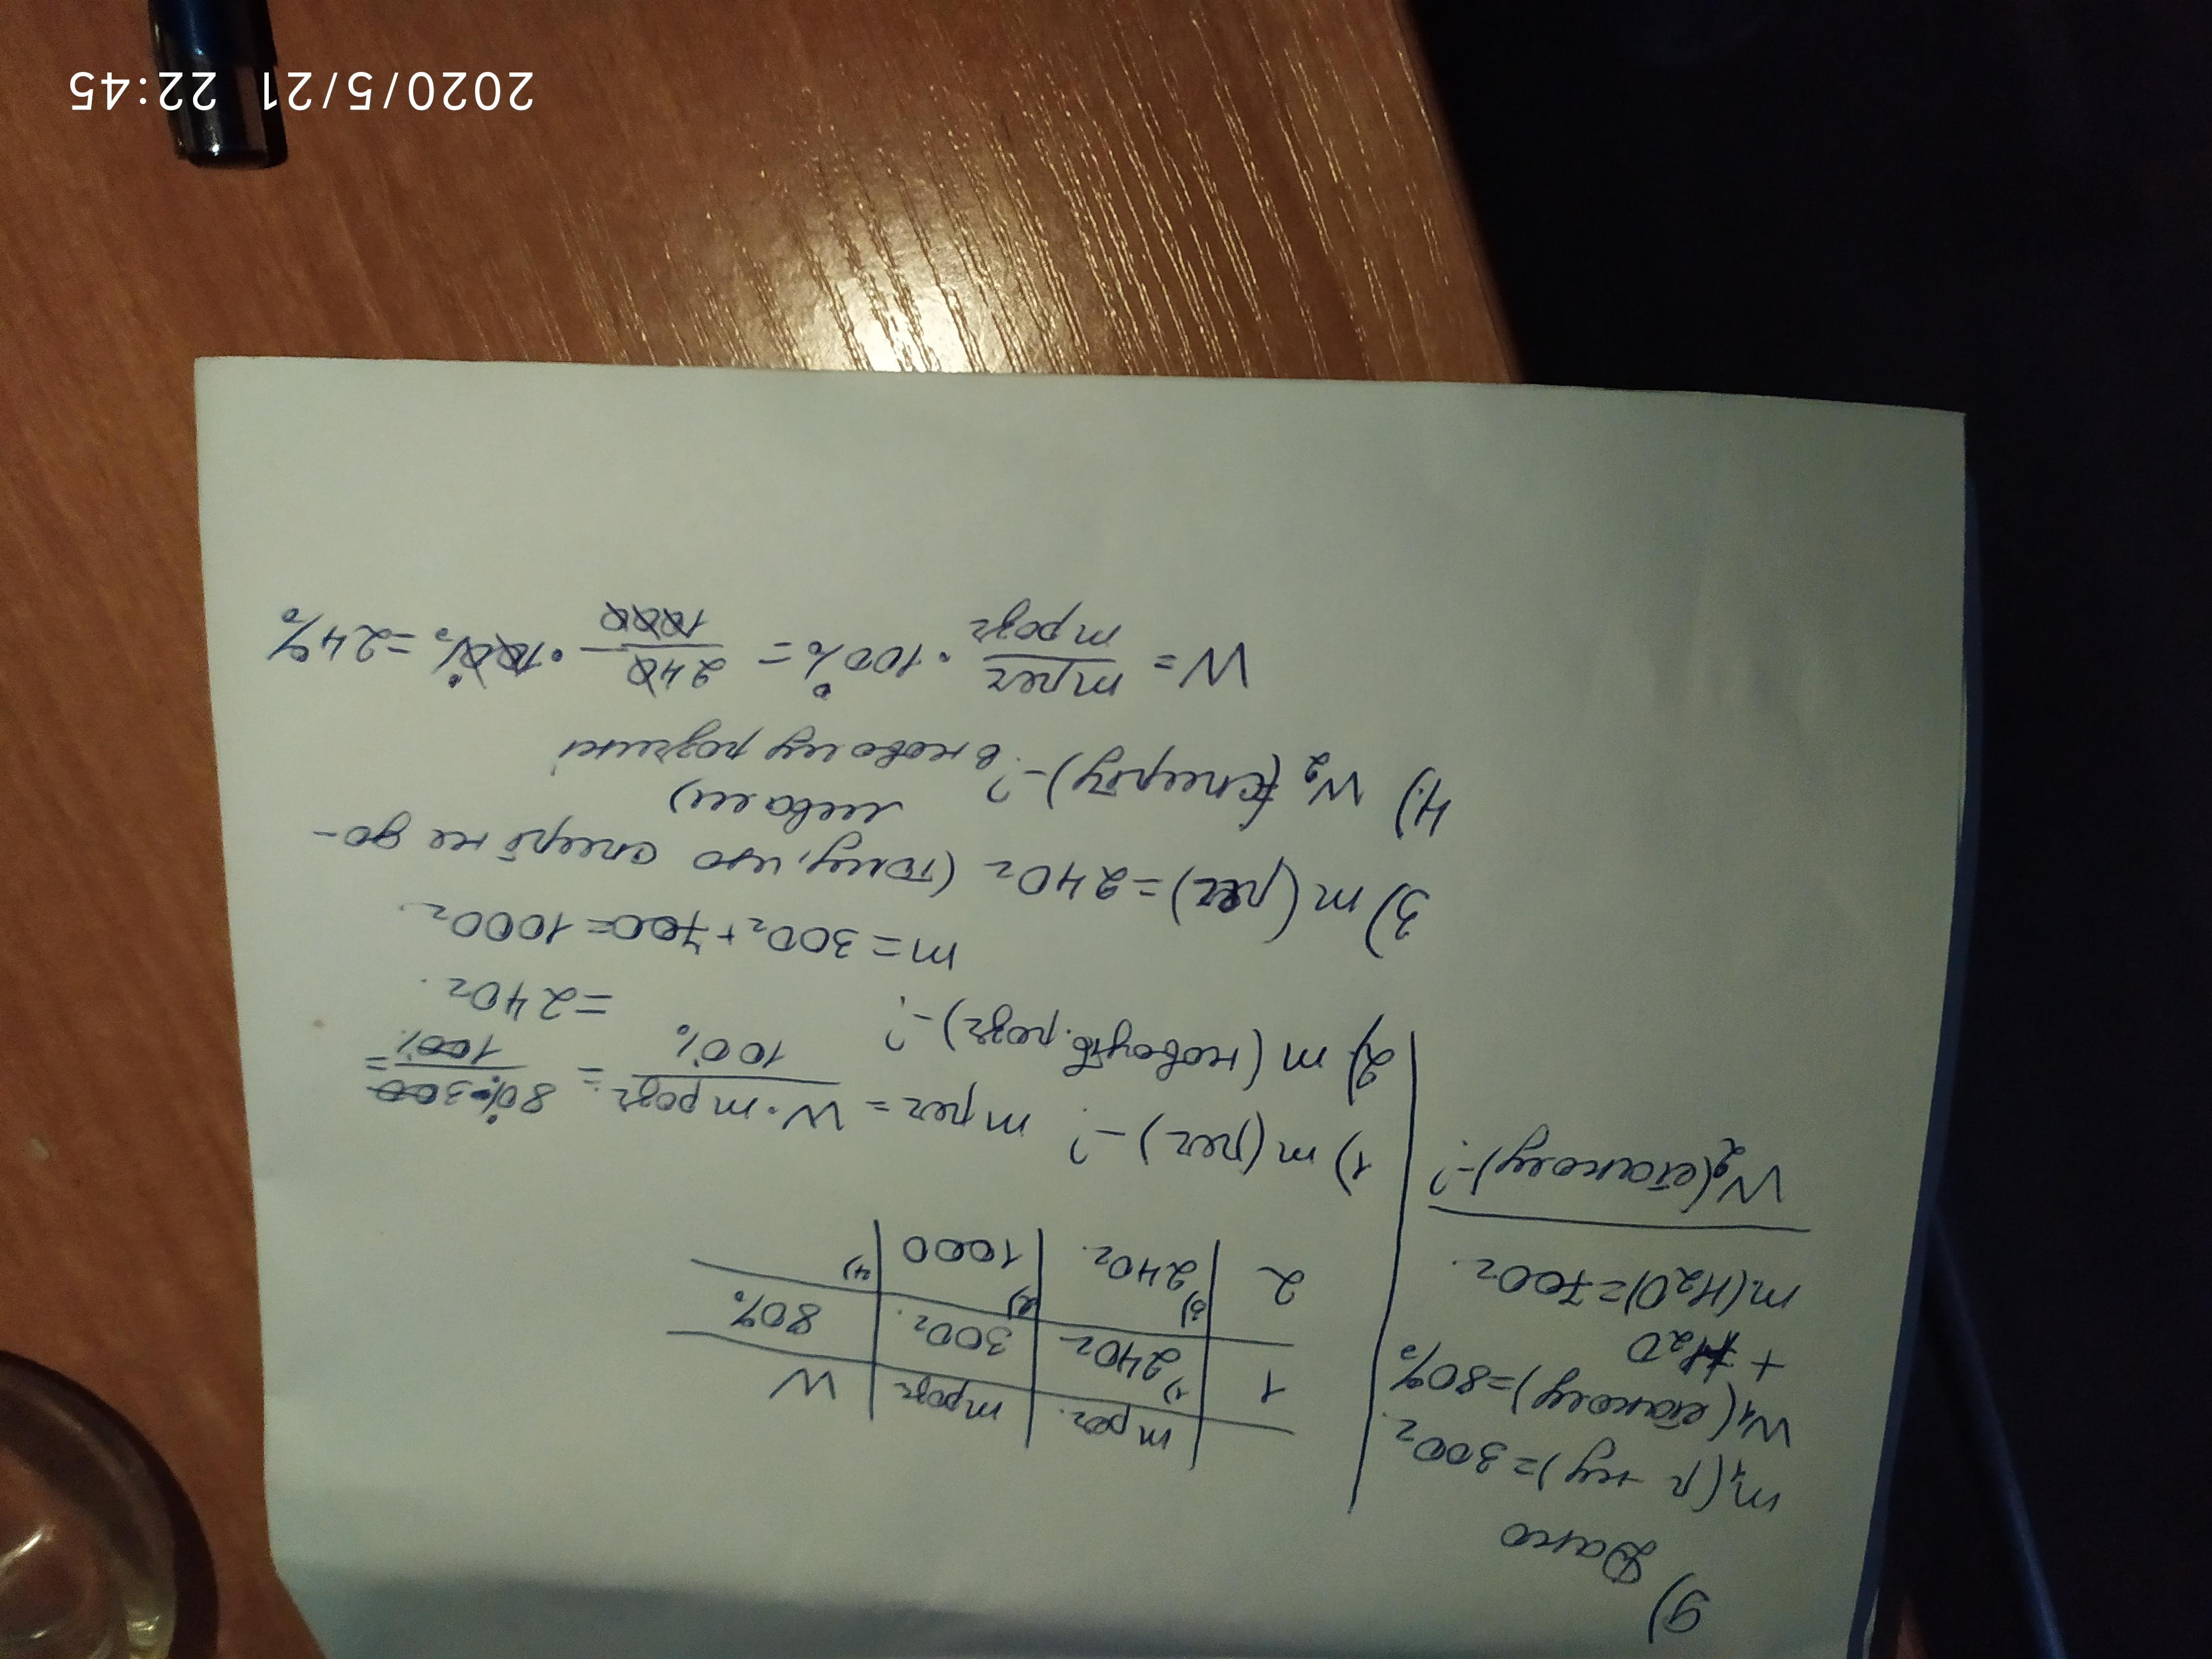 9)
Дано
m₁(р-ну)=300г.
W₁(етанолу)=80%
+ H₂O
m(H₂O)=700г.
W₂(етанолу)-?
m реч. | mрозч | W
1 | 1) 240г | 300г. | 80%
2 | 3) 240г. | 2) 1000 | 4)
1) m(реч)-? m реч = W·m розч. / 100% = 80%·300 / 100% =
=240г.
2) m(новоутв. розч)-?
m=300г+700=1000г.
3) m(реч)=240г (тому, що спирт не до-
ливали)
4.) W₂(спирту)-? в новому розчині
W = mреч / mрозч · 100% = 240 / 1000 · 100% = 24%
2020/5/21 22:45